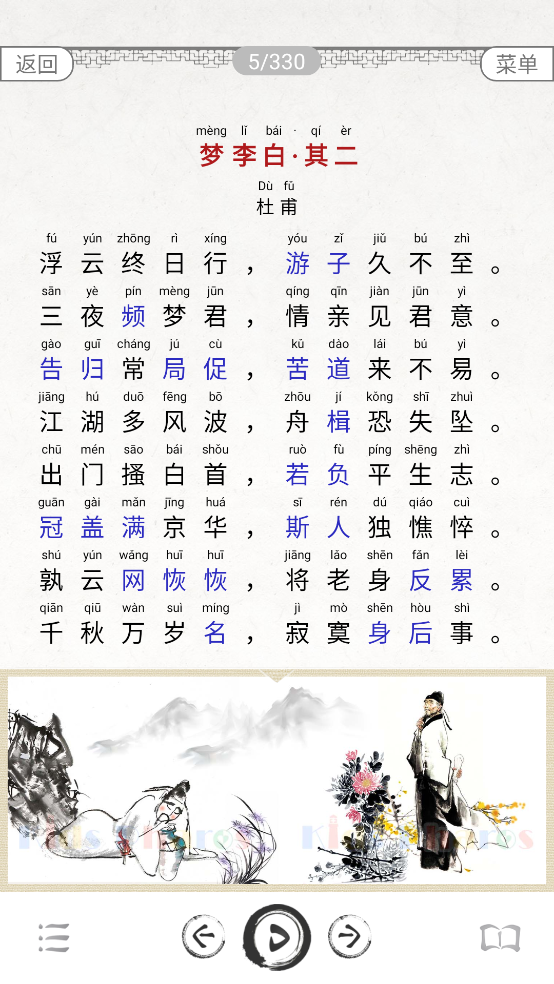 返回
5/330
菜单
mèng lǐ bái · qí èr
梦李白·其二
Dù fǔ
杜甫
fú yún zhōng rì xíng yóu zǐ jiǔ bú zhì
浮云终日行，游子久不至。
sān yè pín mèng jūn qíng qīn jiàn jūn yì
三夜频梦君，情亲见君意。
gào guī cháng jú cù kǔ dào lái bú yì
告归常局促，苦道来不易。
jiāng hú duō fēng bō zhōu jí kǒng shī zhuì
江湖多风波，舟楫恐失坠。
chū mén sāo bái shǒu ruò fù píng shēng zhì
出门搔白首，若负平生志。
guān gài mǎn jīng huá sī rén dú qiáo cuì
冠盖满京华，斯人独憔悴。
shú yún wǎng huī huī jiāng lǎo shēn fǎn lèi
孰云网恢恢，将老身反累。
qiān qiū wàn suì míng jì mò shēn hòu shì
千秋万岁名，寂寞身后事。